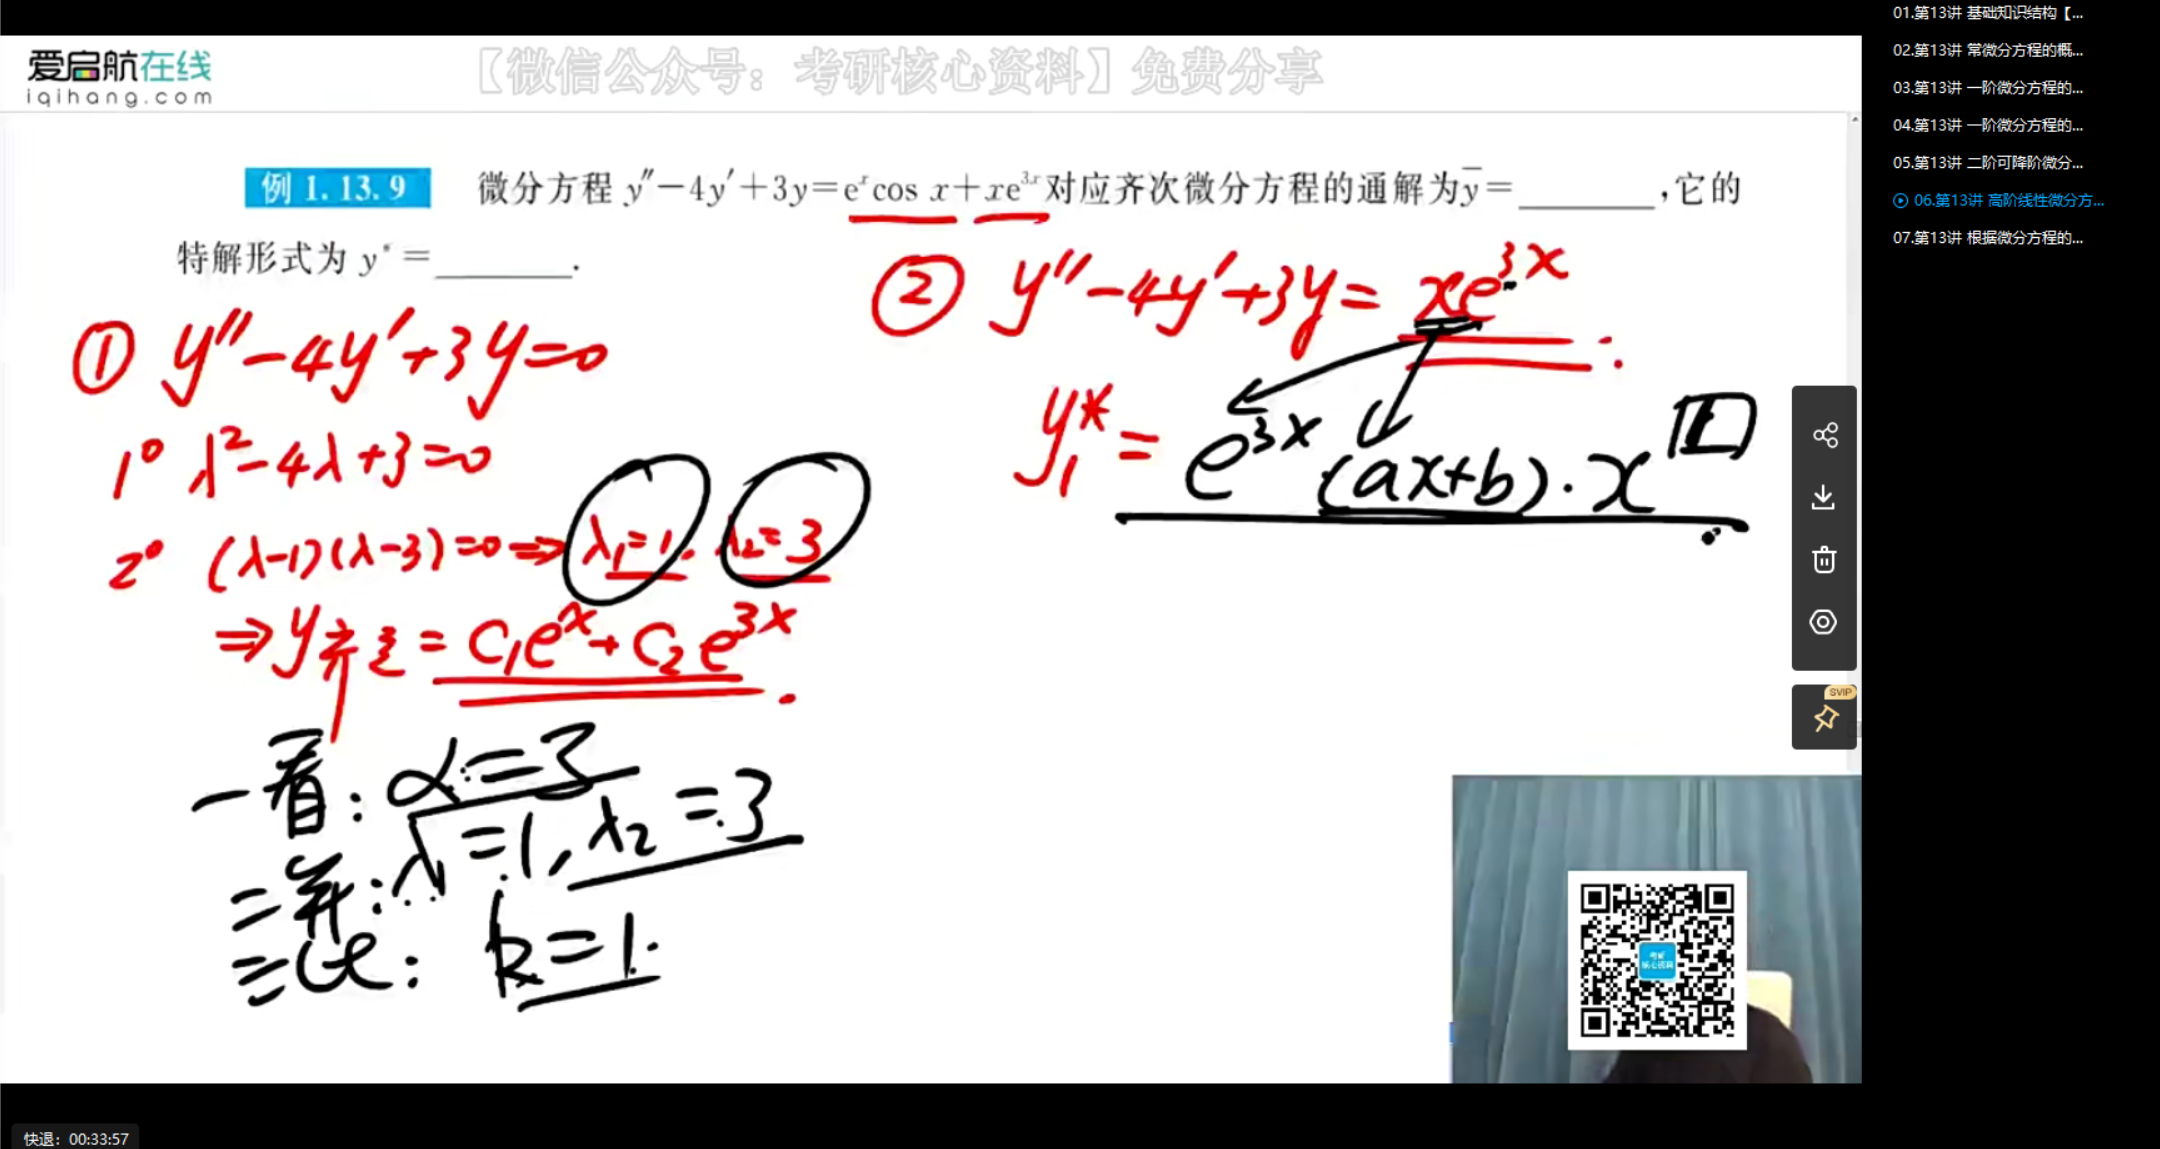 爱启航在线
iqihang.com
【微信公众号：考研核心资料】免费分享
例 1.13.9 微分方程 y″−4y′+3y=eˣcos x+xe³ˣ对应齐次微分方程的通解为ȳ=________,它的
特解形式为 y*=________.
① y″−4y′+3y=0
1° λ²−4λ+3=0
2° (λ−1)(λ−3)=0⇒λ₁=1, λ₂=3
⇒y齐通=C₁eˣ+C₂e³ˣ.
一看：α=3
二算：λ₁=1, λ₂=3
三比：k=1.
② y″−4y′+3y=xe³ˣ.
y₁*=e³ˣ(ax+b)·x
SVIP
考研
核心资料
01.第13讲 基础知识结构【...
02.第13讲 常微分方程的概...
03.第13讲 一阶微分方程的...
04.第13讲 一阶微分方程的...
05.第13讲 二阶可降阶微分...
06.第13讲 高阶线性微分方...
07.第13讲 根据微分方程的...
快退：00:33:57